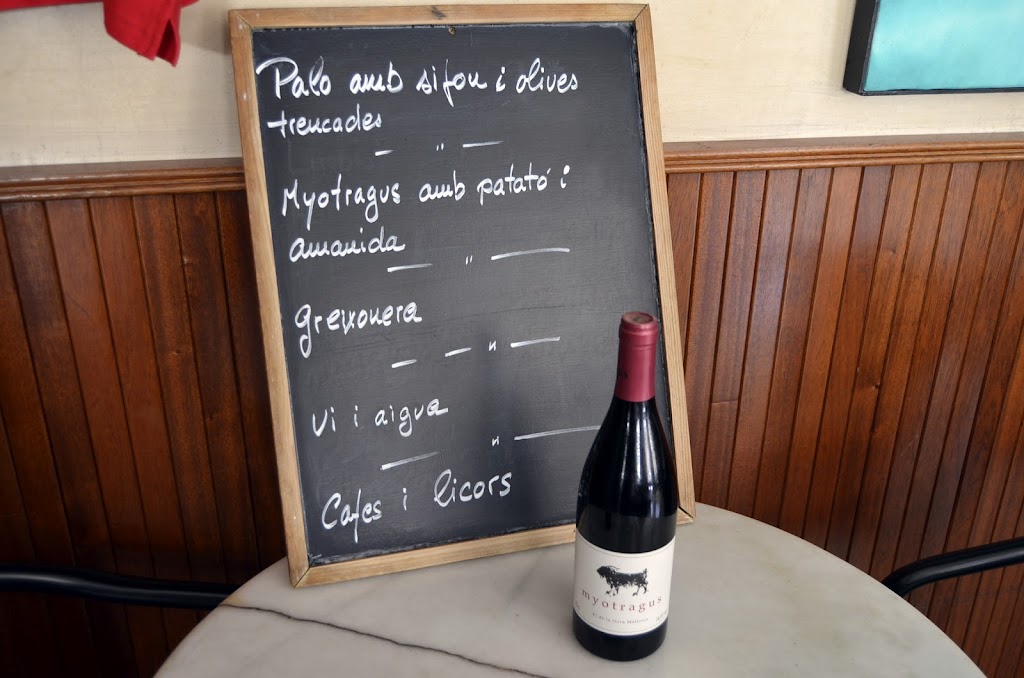 Palo amb sifon i olives
trencades
Myotragus amb patató i
amanida
greixonera
Vi i aigua
Cafes i licors
myotragus
Vi de la terra Mallorca